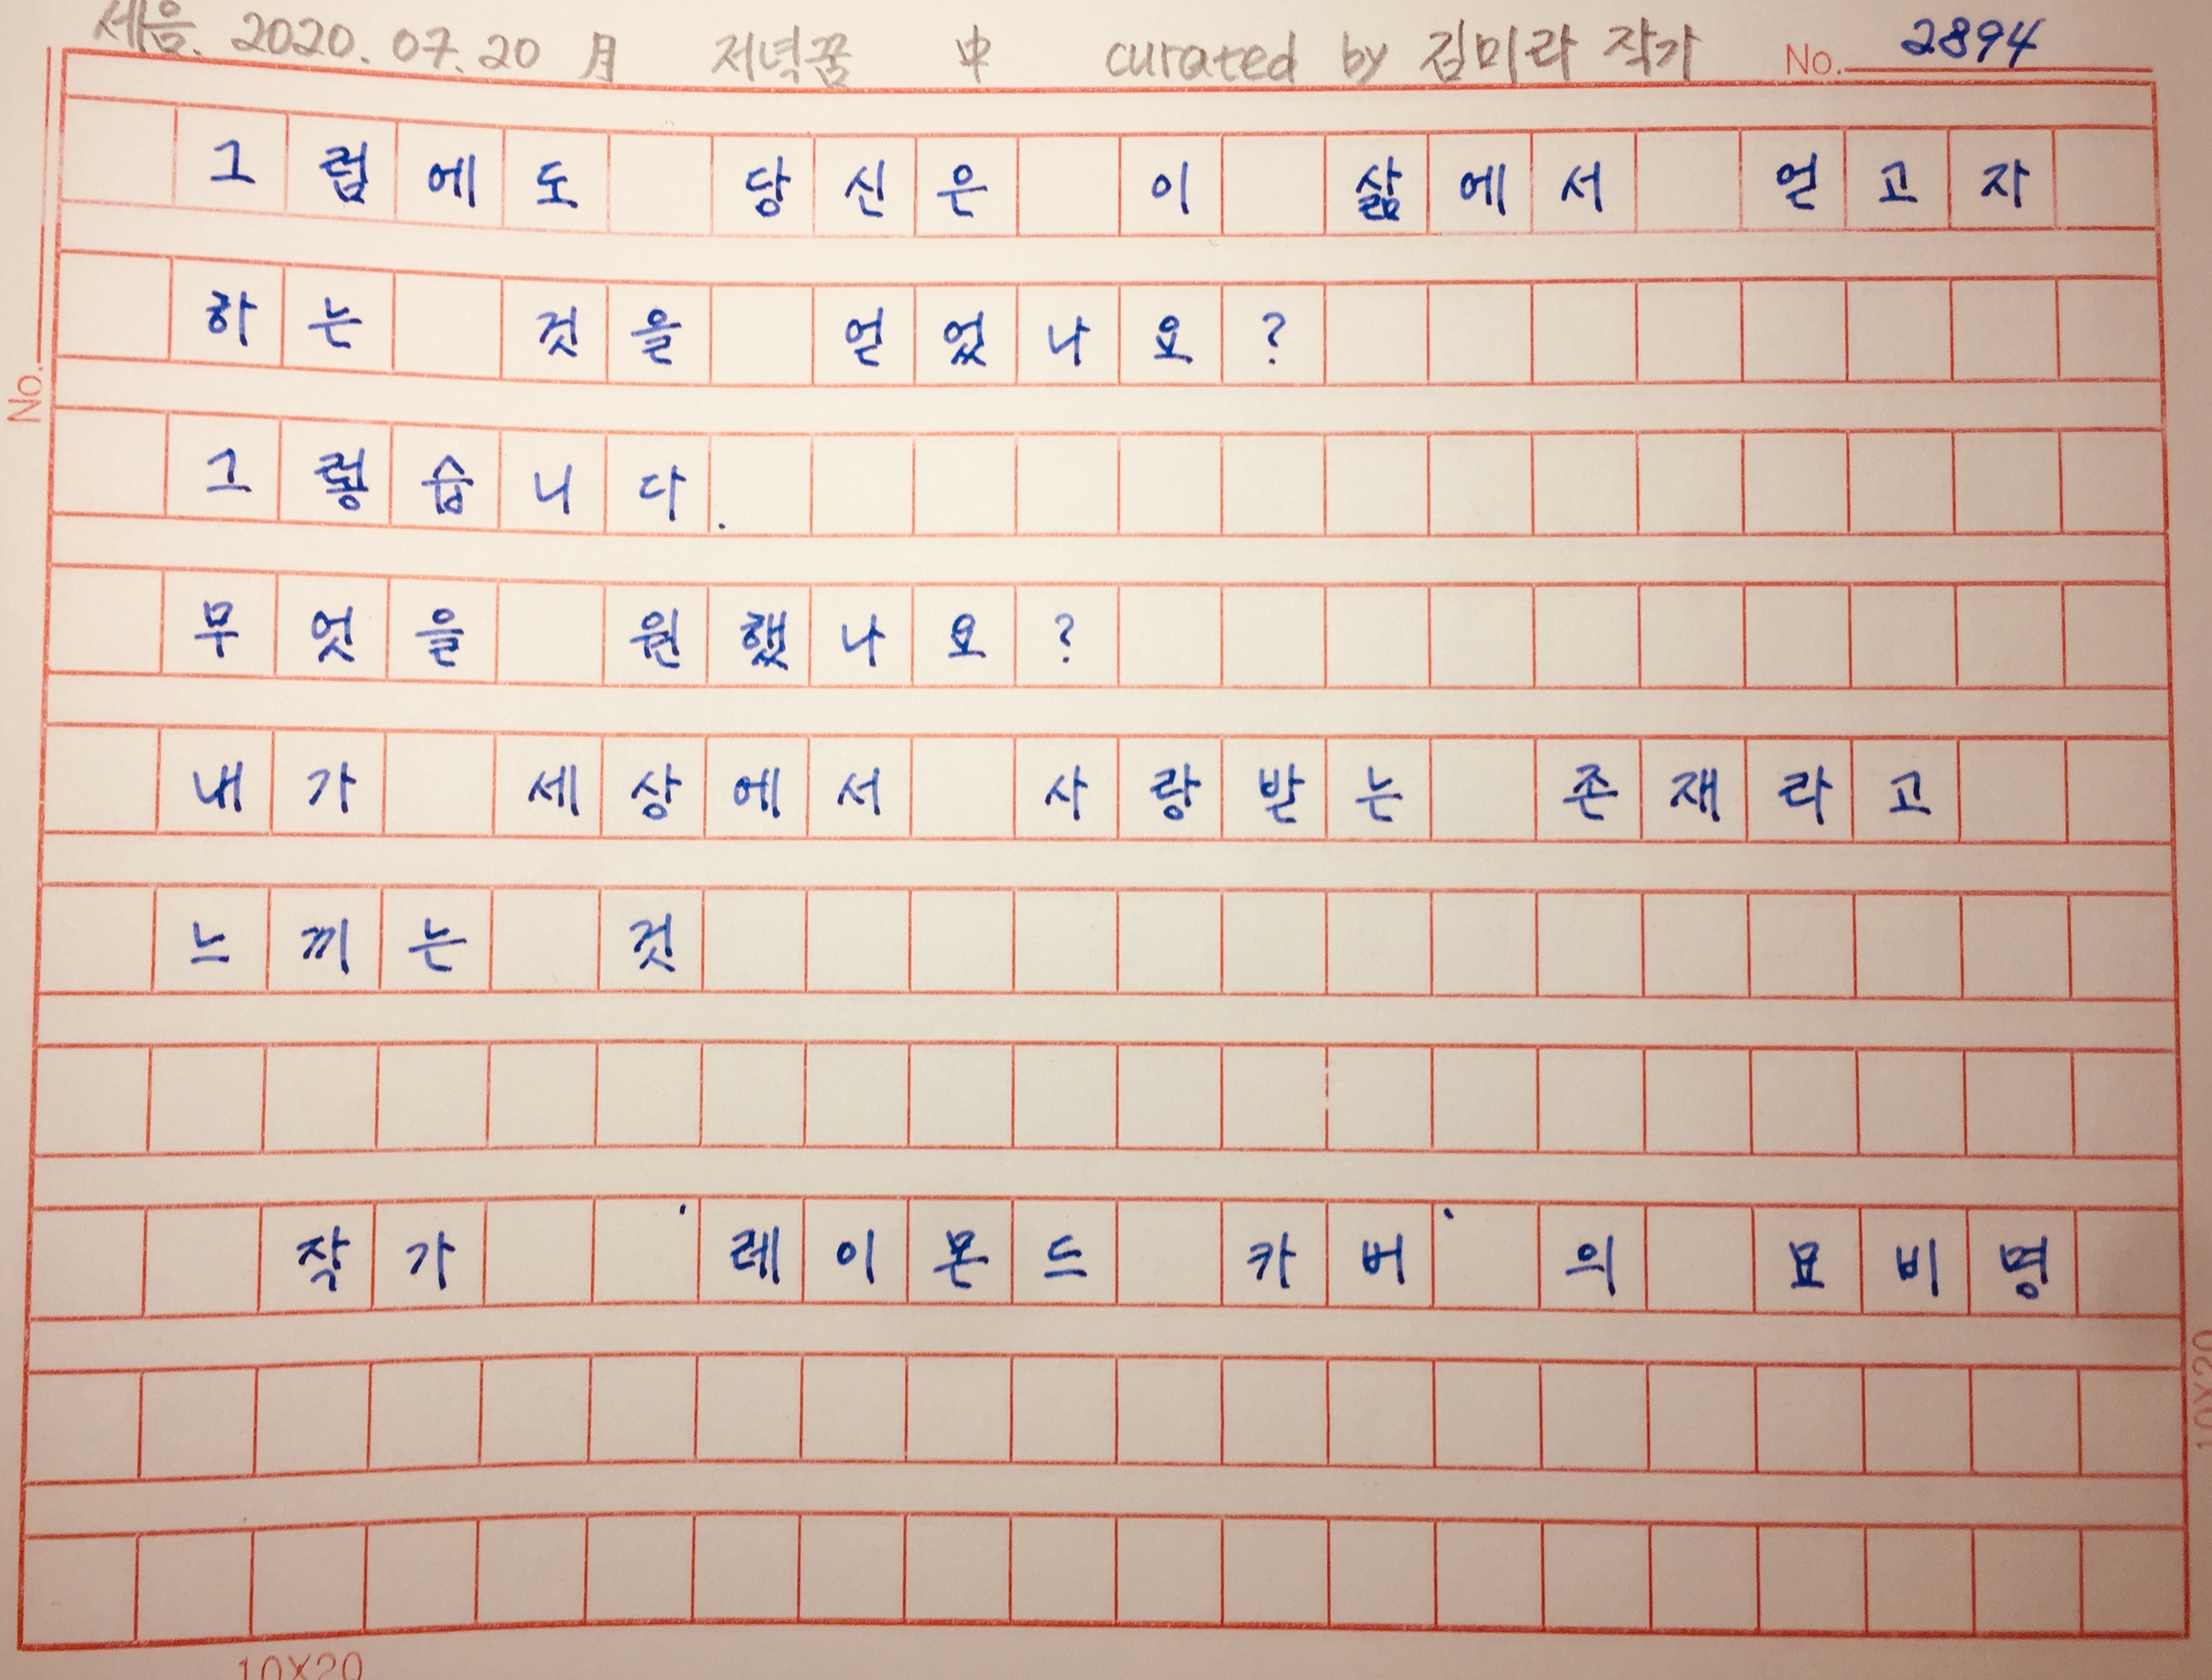 세음. 2020. 07. 20 月 저녁꿈 中 curated by 김미라 작가 No. 2894
그럼에도 당신은 이 삶에서 얻고자
하는 것을 얻었나요?
No.
그렇습니다.
무엇을 원했나요?
내가 세상에서 사랑받는 존재라고
느끼는 것
작가 '레이몬드 카버'의 묘비명
10X20
10X20